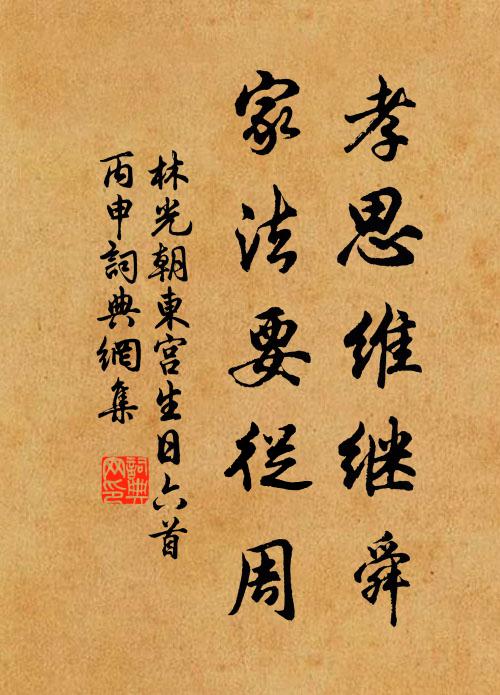 孝思维继舜
家法要從周
林光朝東宫生日六首
丙申詞典網集
詞典網印